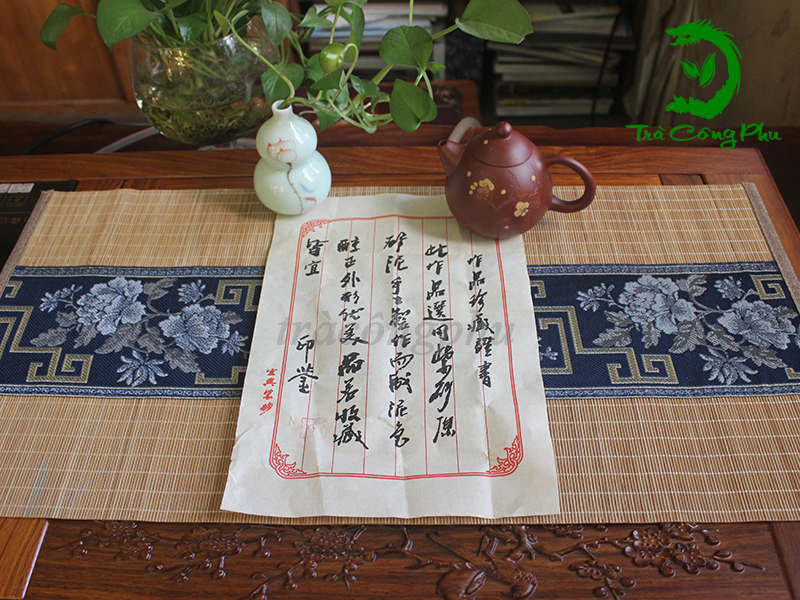 Trà Công Phu
作品珍藏證書
此作品選用紫砂原
泥手工製作而成泥色
醇正外形優美品茗收藏
皆宜 印鑒
宜興紫砂
tràcôngphu